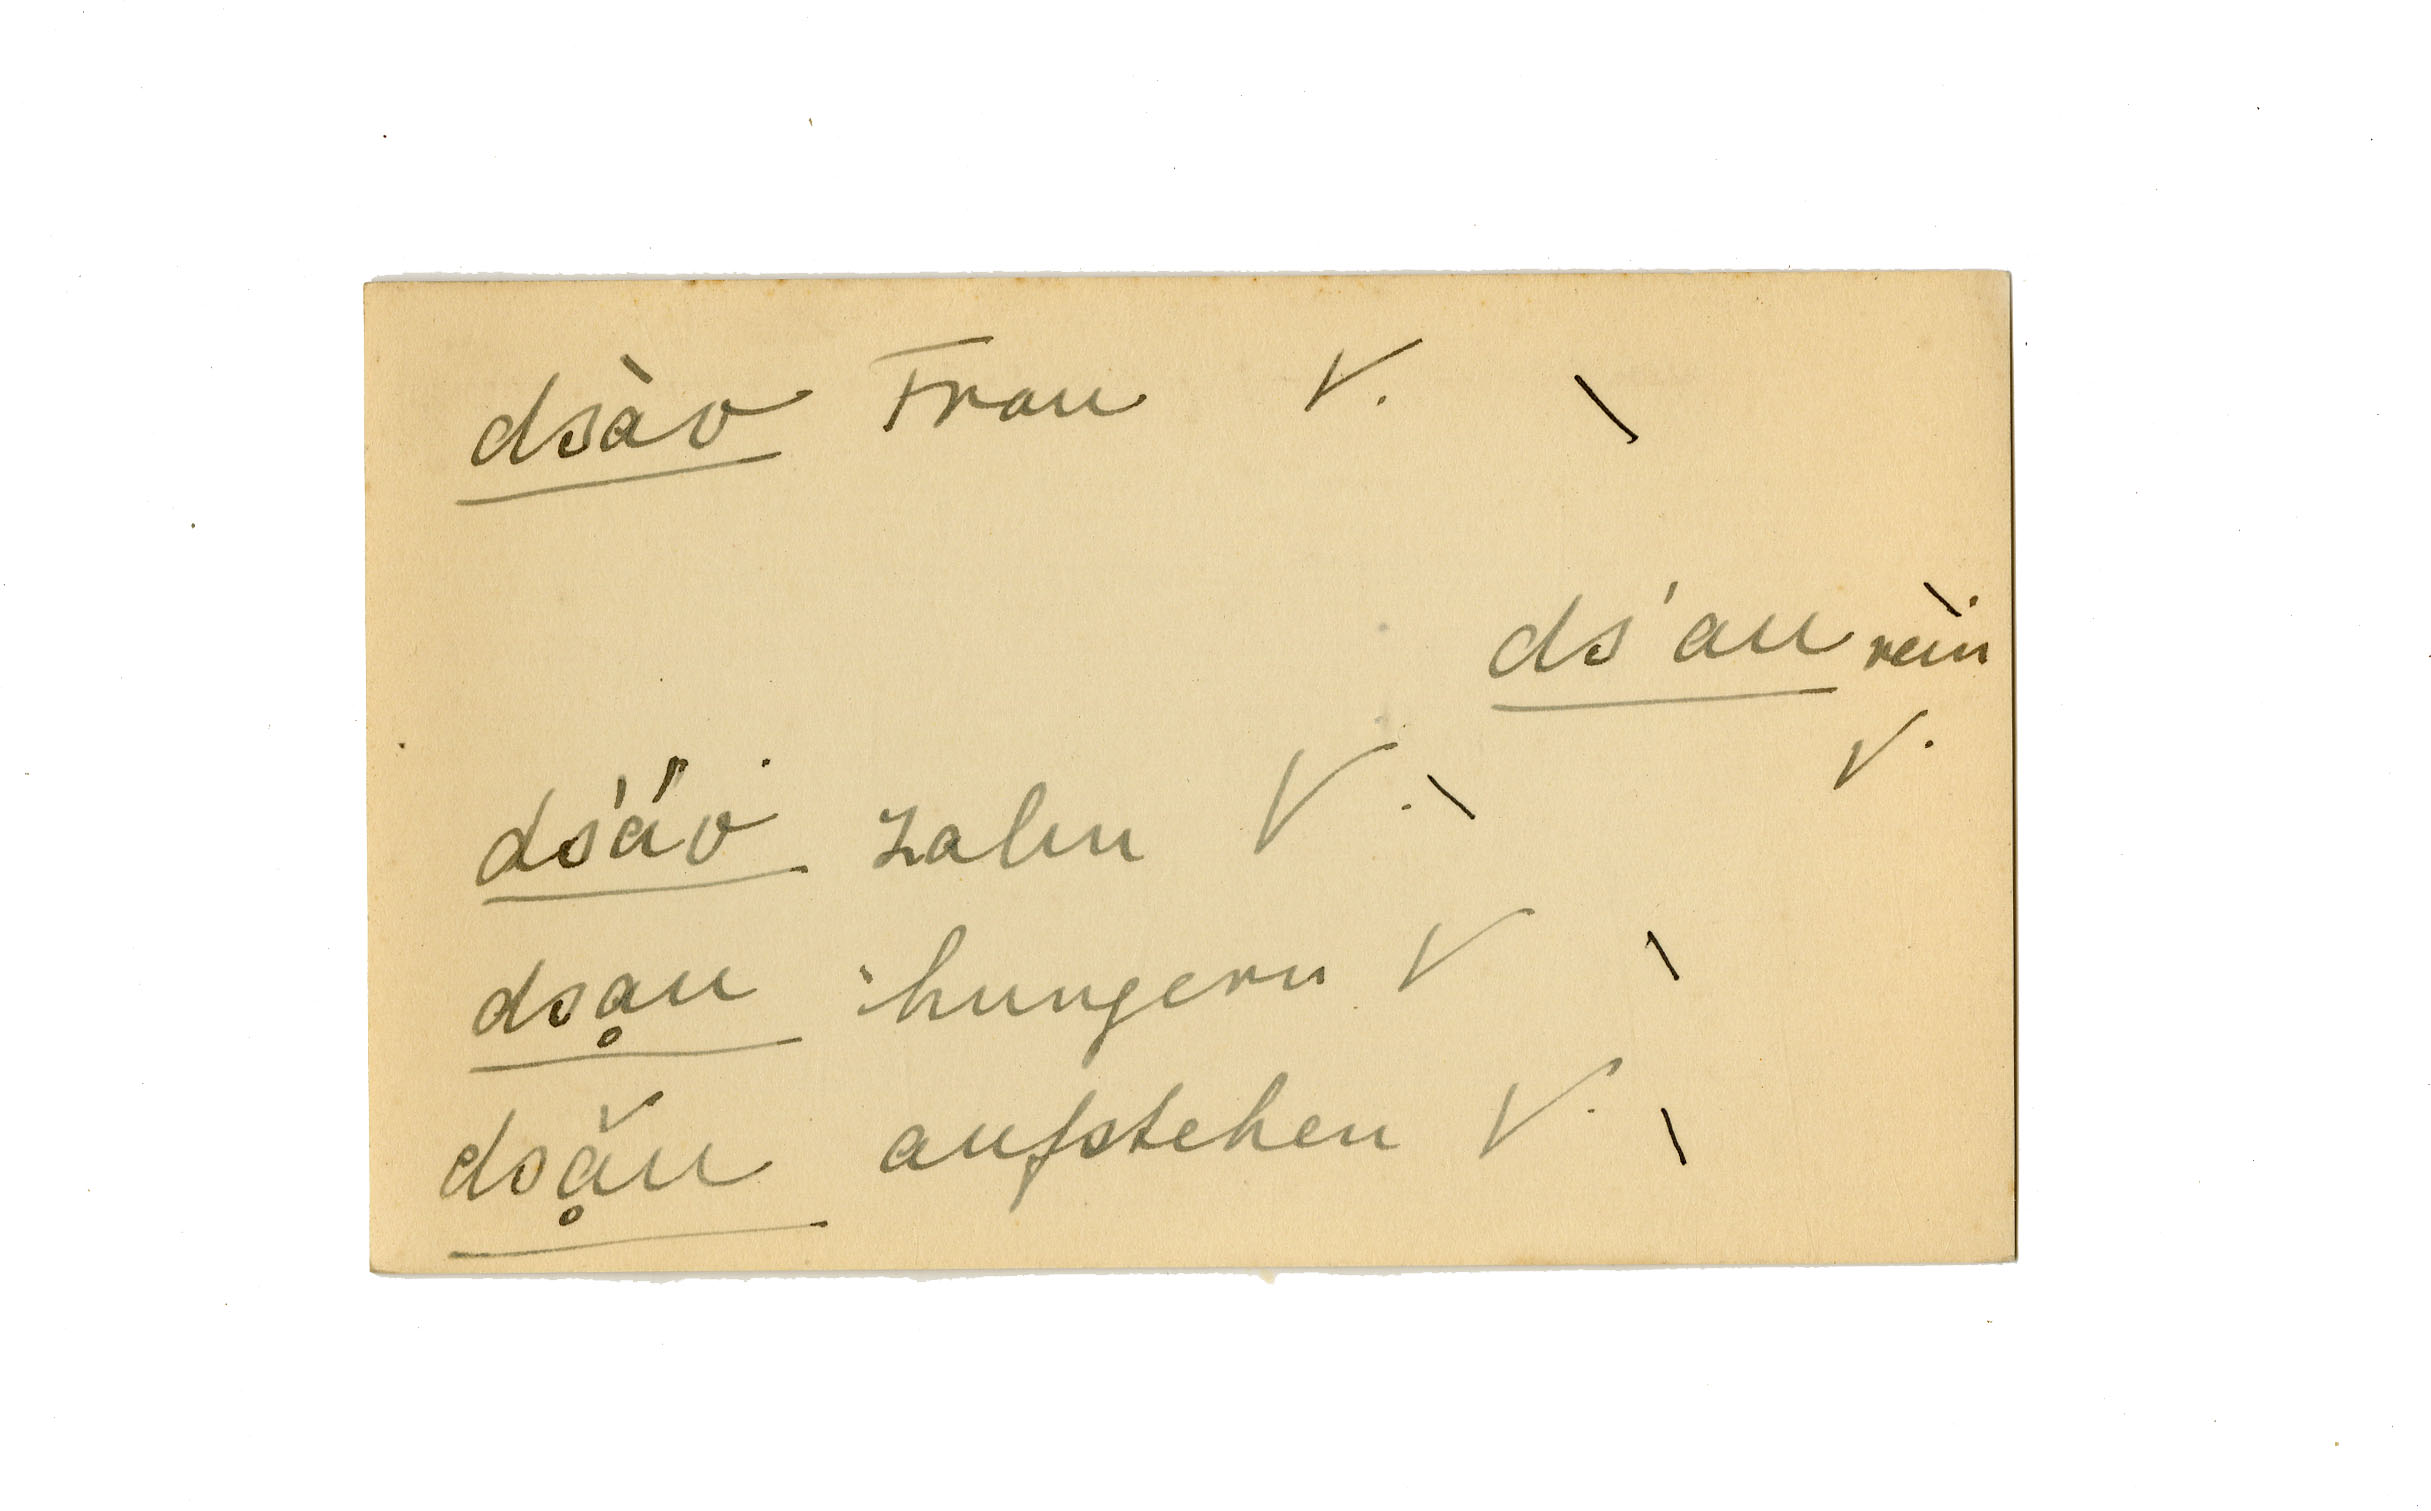 dsào Frau V. \
ds'au rein \
V.
ds'áo zahn V. \
dsḁu hungern V. \
dsḁ̌u aufstehen V. \